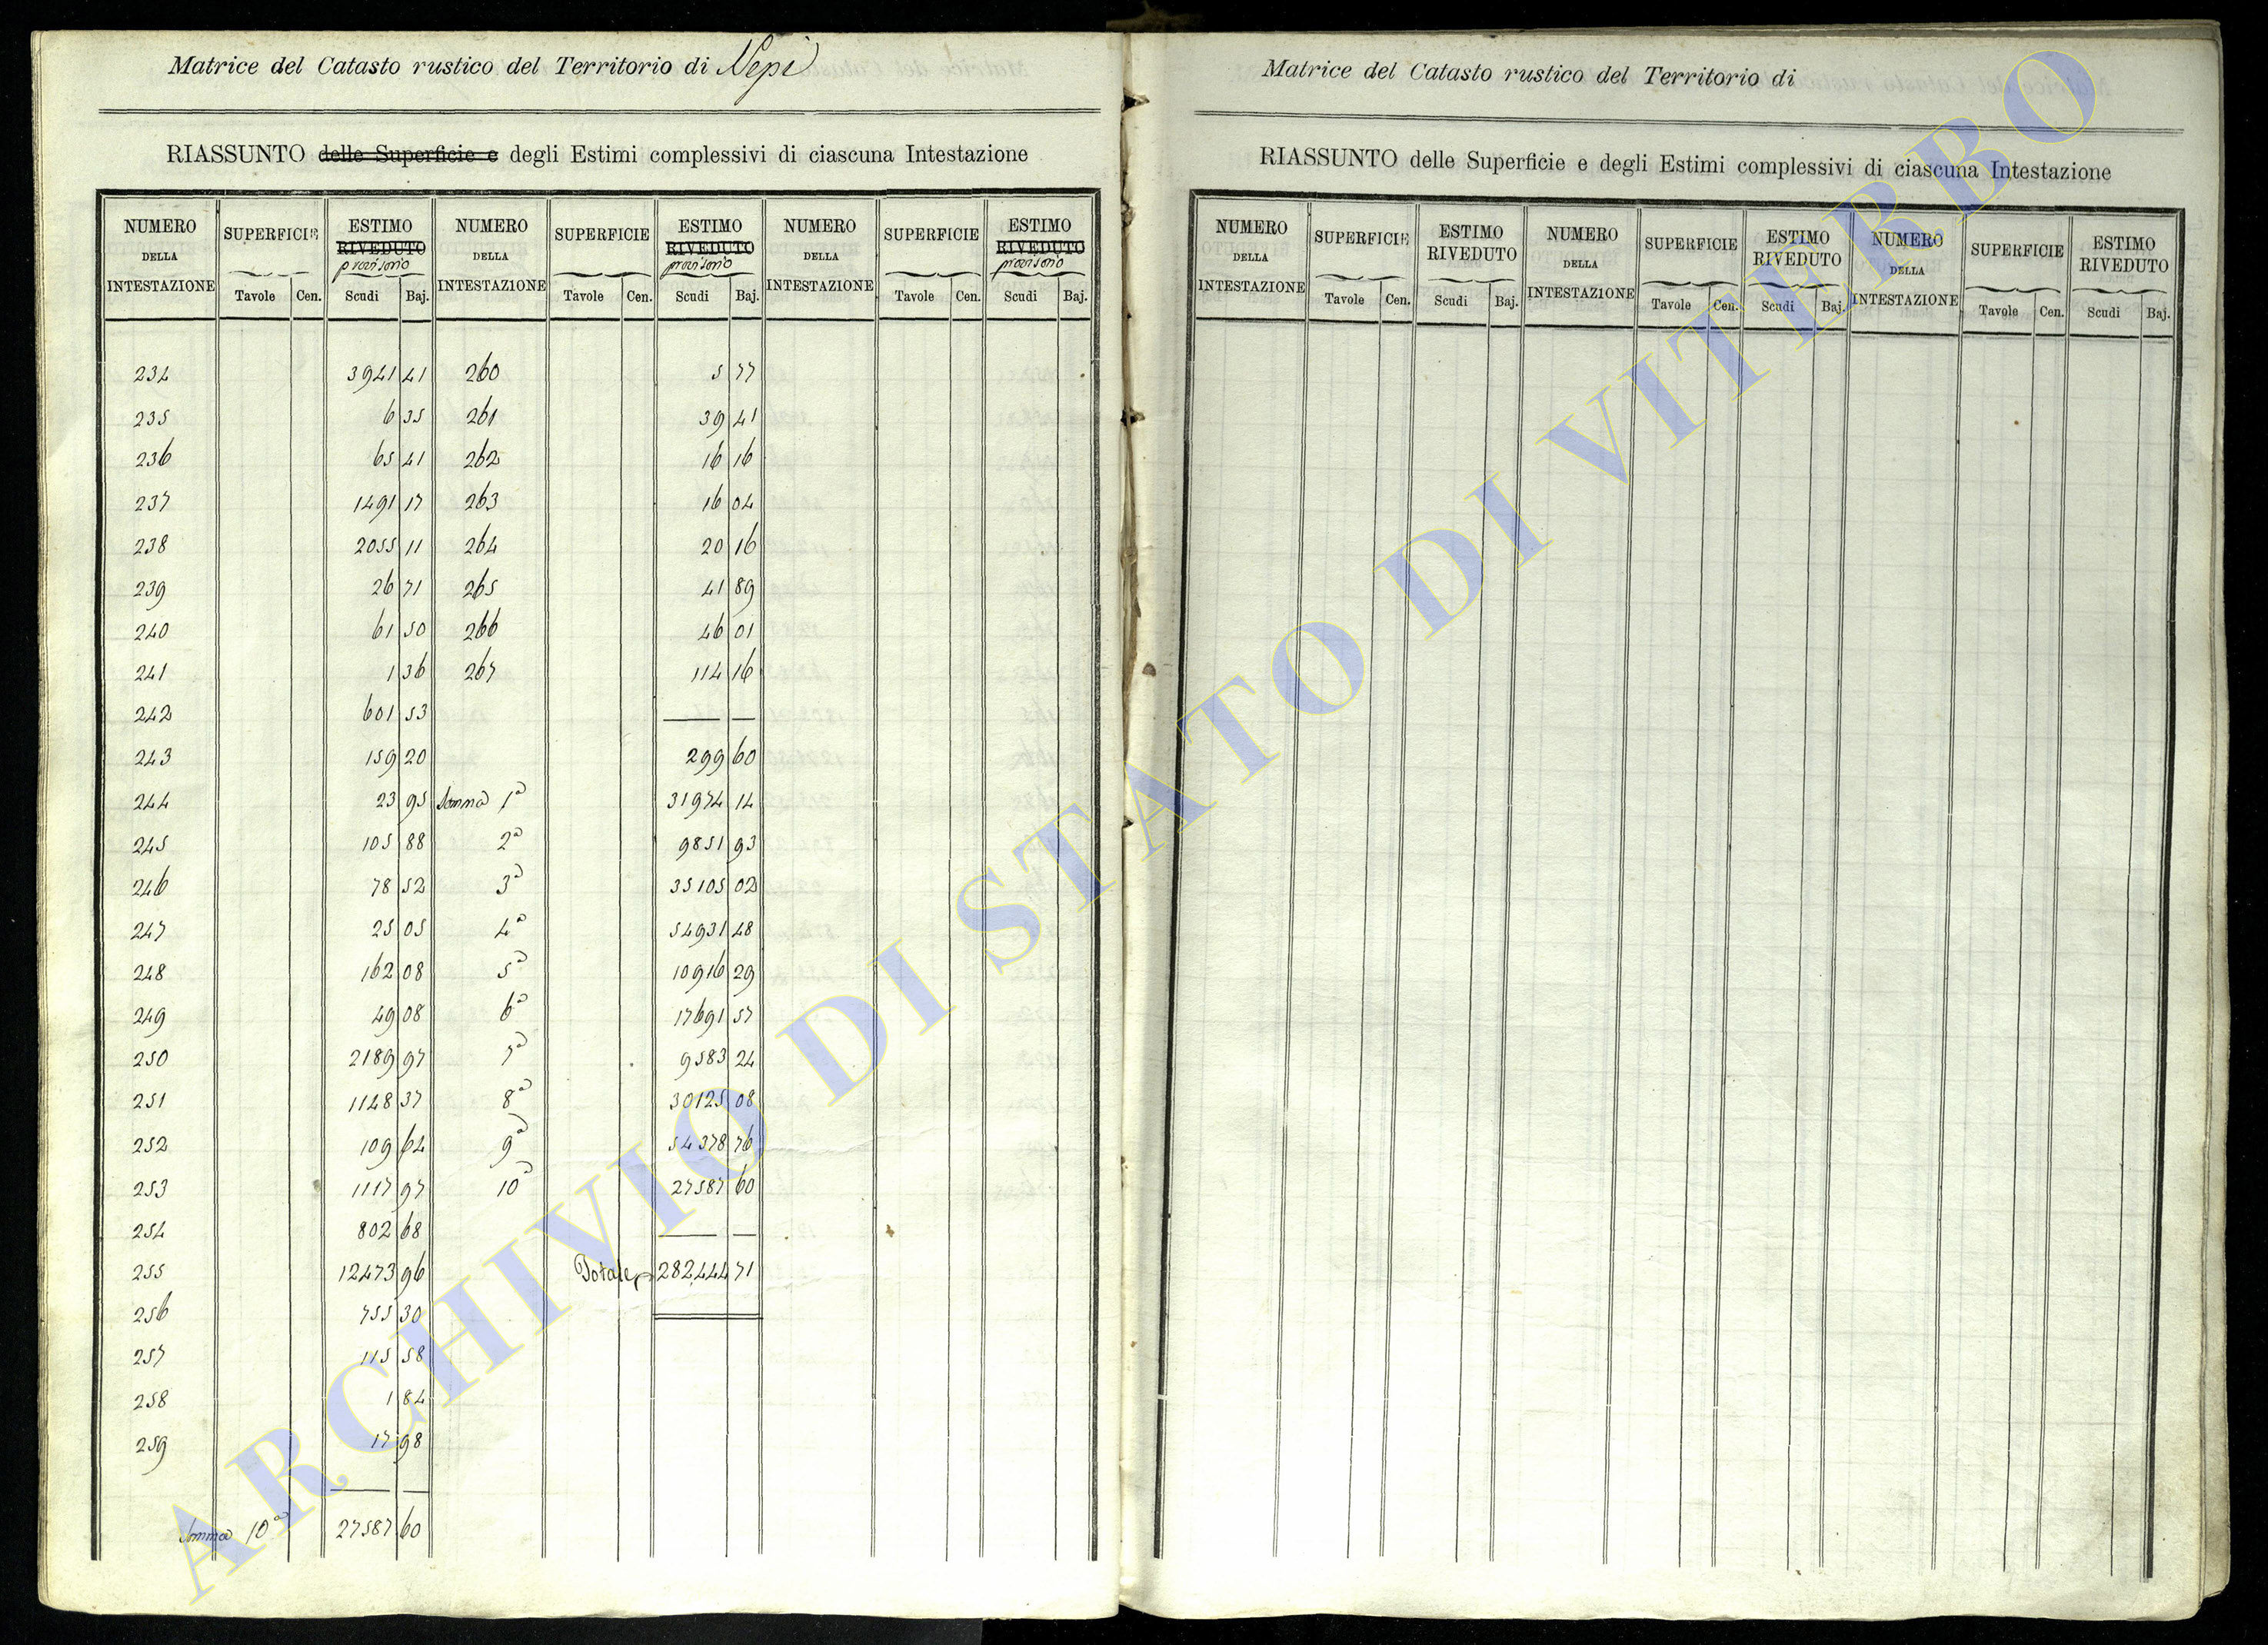 Matrice del Catasto rustico del Territorio di Nepi
RIASSUNTO delle Superficie e degli Estimi complessivi di ciascuna Intestazione
NUMERO DELLA INTESTAZIONE SUPERFICIE Tavole Cen. ESTIMO RIVEDUTO provisorio Scudi Baj. NUMERO DELLA INTESTAZIONE SUPERFICIE Tavole Cen. ESTIMO RIVEDUTO provisorio Scudi Baj. NUMERO DELLA INTESTAZIONE SUPERFICIE Tavole Cen. ESTIMO RIVEDUTO provisorio Scudi Baj.
234 3941 41 260 5 77
235 6 35 261 39 41
236 65 41 262 16 16
237 1491 17 263 16 04
238 2055 11 264 20 16
239 26 71 265 41 89
240 61 50 266 46 01
241 1 36 267 114 16
242 601 53
243 159 20 299 60
244 23 95 Somma 1ª 31974 14
245 105 88 2ª 9851 93
246 78 52 3ª 35105 02
247 25 05 4ª 54931 48
248 162 08 5ª 10916 29
249 49 08 6ª 17691 57
250 2189 97 7ª 9583 24
251 1148 37 8ª 30125 08
252 109 64 9ª 54378 76
253 1117 97 10ª 27587 60
254 802 68
255 12473 96 Totale 282,444 71
256 755 30
257 115 58
258 1 84
259 17 98
Somma 10ª 27587 60
Matrice del Catasto rustico del Territorio di
RIASSUNTO delle Superficie e degli Estimi complessivi di ciascuna Intestazione
NUMERO DELLA INTESTAZIONE SUPERFICIE Tavole Cen. ESTIMO RIVEDUTO Scudi Baj. NUMERO DELLA INTESTAZIONE SUPERFICIE Tavole Cen. ESTIMO RIVEDUTO Scudi Baj. NUMERO DELLA INTESTAZIONE SUPERFICIE Tavole Cen. ESTIMO RIVEDUTO Scudi Baj.
ARCHIVIO DI STATO DI VITERBO